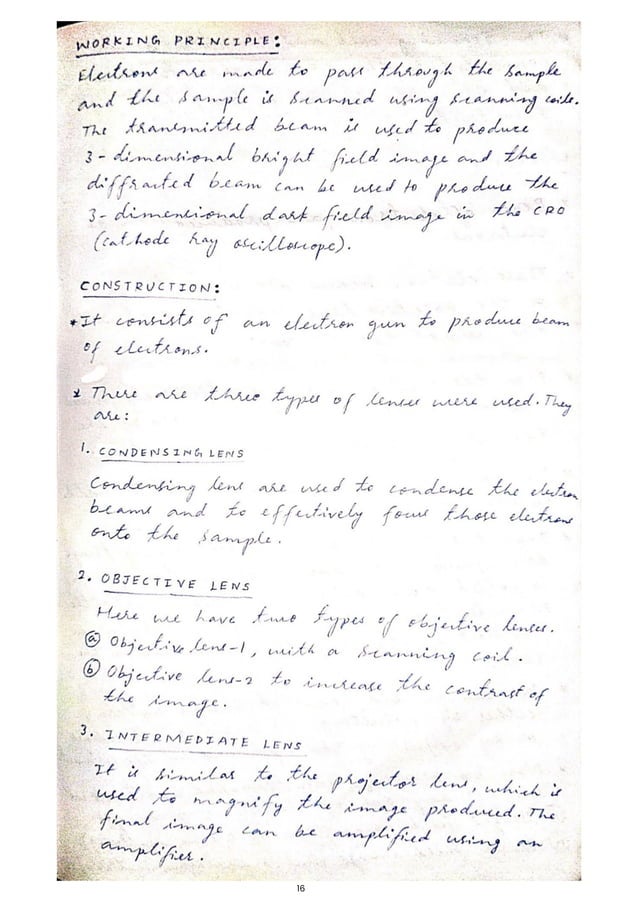 WORKING PRINCIPLE:
Electrons are made to pass through the sample
and the sample is scanned using scanning coils.
The transmitted beam is used to produce
3-dimensional bright field image and the
diffracted beam can be used to produce the
3-dimensional dark field image in the CRO
(cathode ray oscilloscope).
CONSTRUCTION:
* It consists of an electron gun to produce beam
of electrons.
* There are three types of lenses were used. They
are:
1. CONDENSING LENS
Condensing lens are used to condense the electron
beams and to effectively focus those electrons
onto the sample.
2. OBJECTIVE LENS
Here we have two types of objective lenses.
(a) Objective lens-1, with a scanning coil.
(b) Objective lens-2 to increase the contrast of
the image.
3. INTERMEDIATE LENS
It is similar to the projector lens, which is
used to magnify the image produced. The
final image can be amplified using an
amplifier.
16